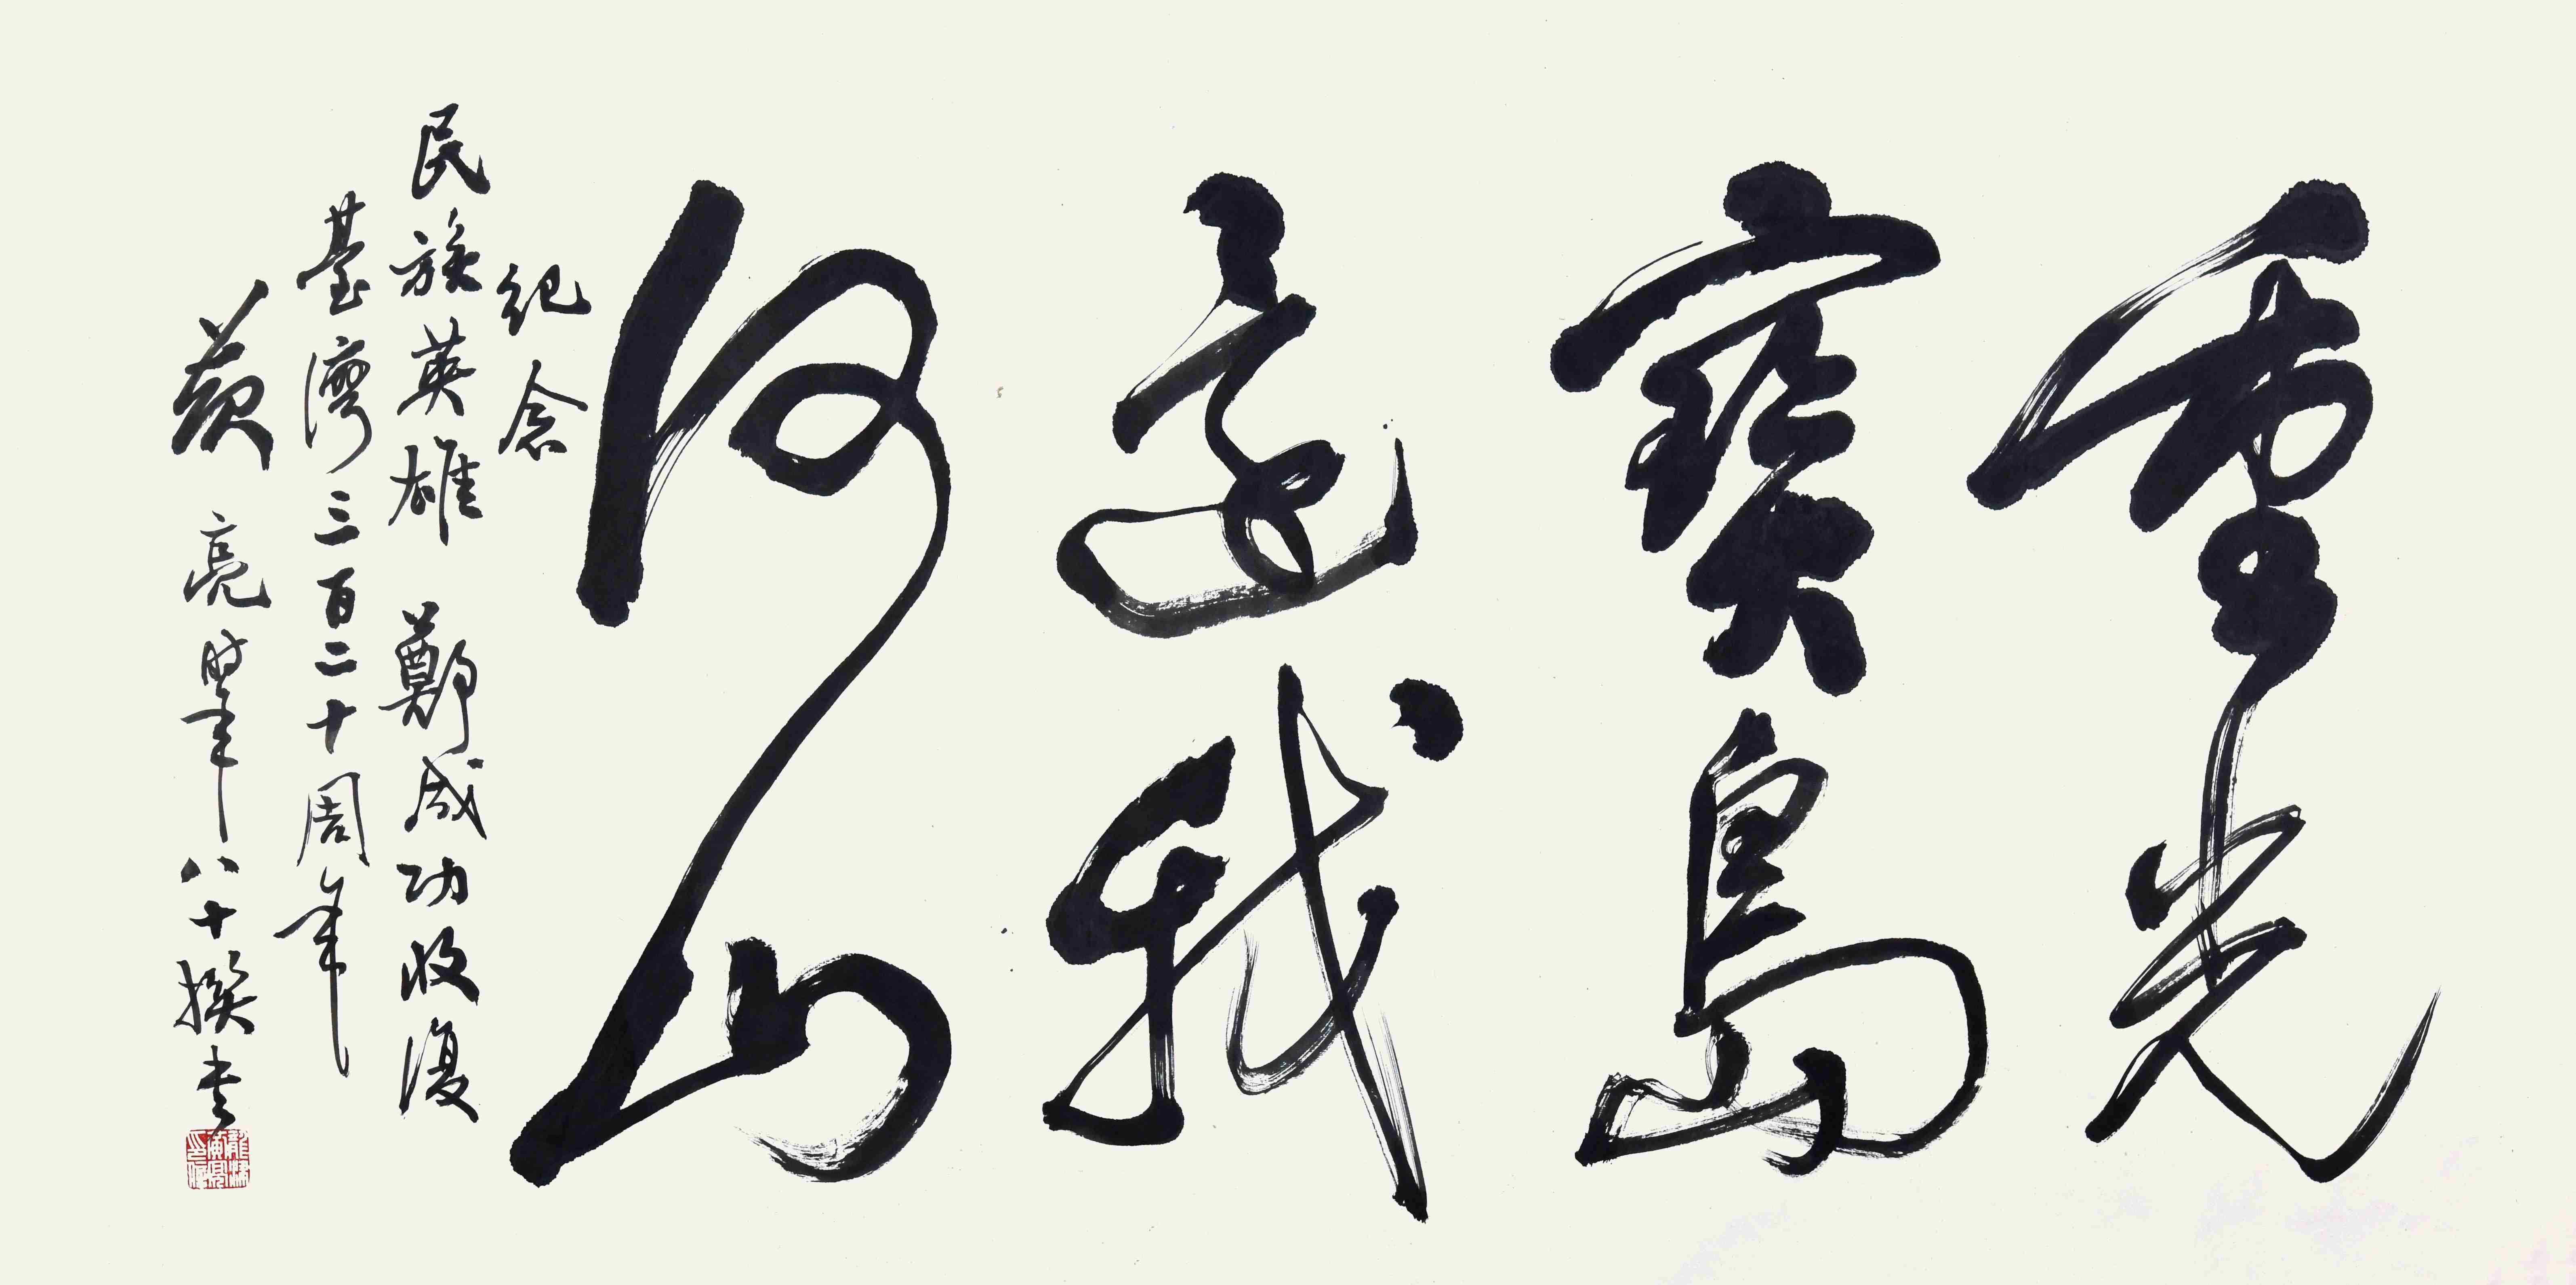 重光
寶島
還我
河山
紀念
民族英雄 鄭成功收復
臺灣三百二十周年
黃亮 时年八十撰书